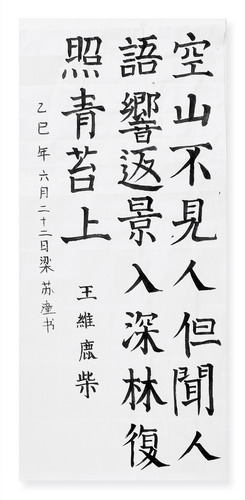 空山不見人但聞人
語響返景入深林復
照青苔上
王維鹿柴
乙巳年六月二十二日梁苏书